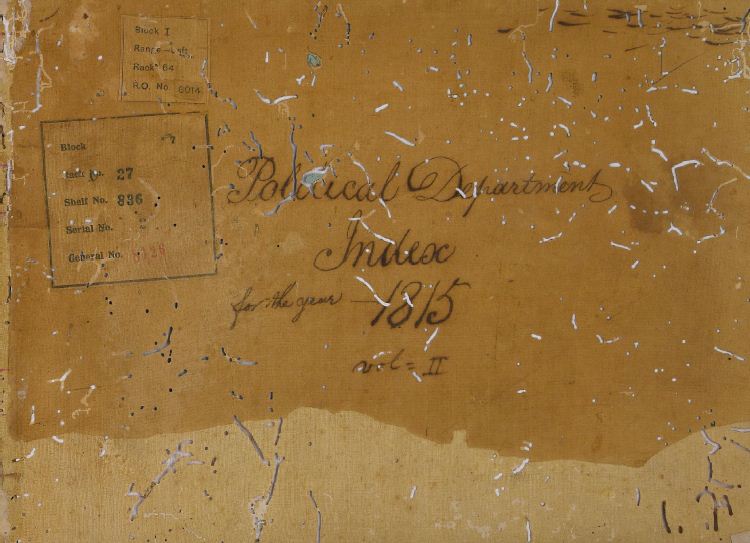 Block I
Range Left
Rack 64
R.O. No 6014
Block 7
Rack No. 27
Shelf No. 836
Serial No.
General No.
Political Department
Index
for the year 1815
vol = II